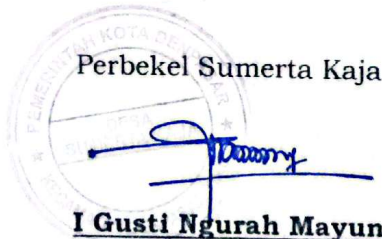 PEMERINTAH KOTA DENPASAR
Perbekel Sumerta Kaja
DESA
I Gusti Ngurah Mayun